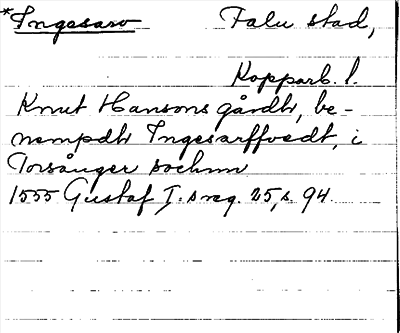 *Ingesarv Falu stad,
Kopparb. l.
Knut Hansons gårdh, be-
nempdh Ingesarffvedt, i
Torsånger sochnn
1555 Gustaf I:s reg. 25, s. 94.